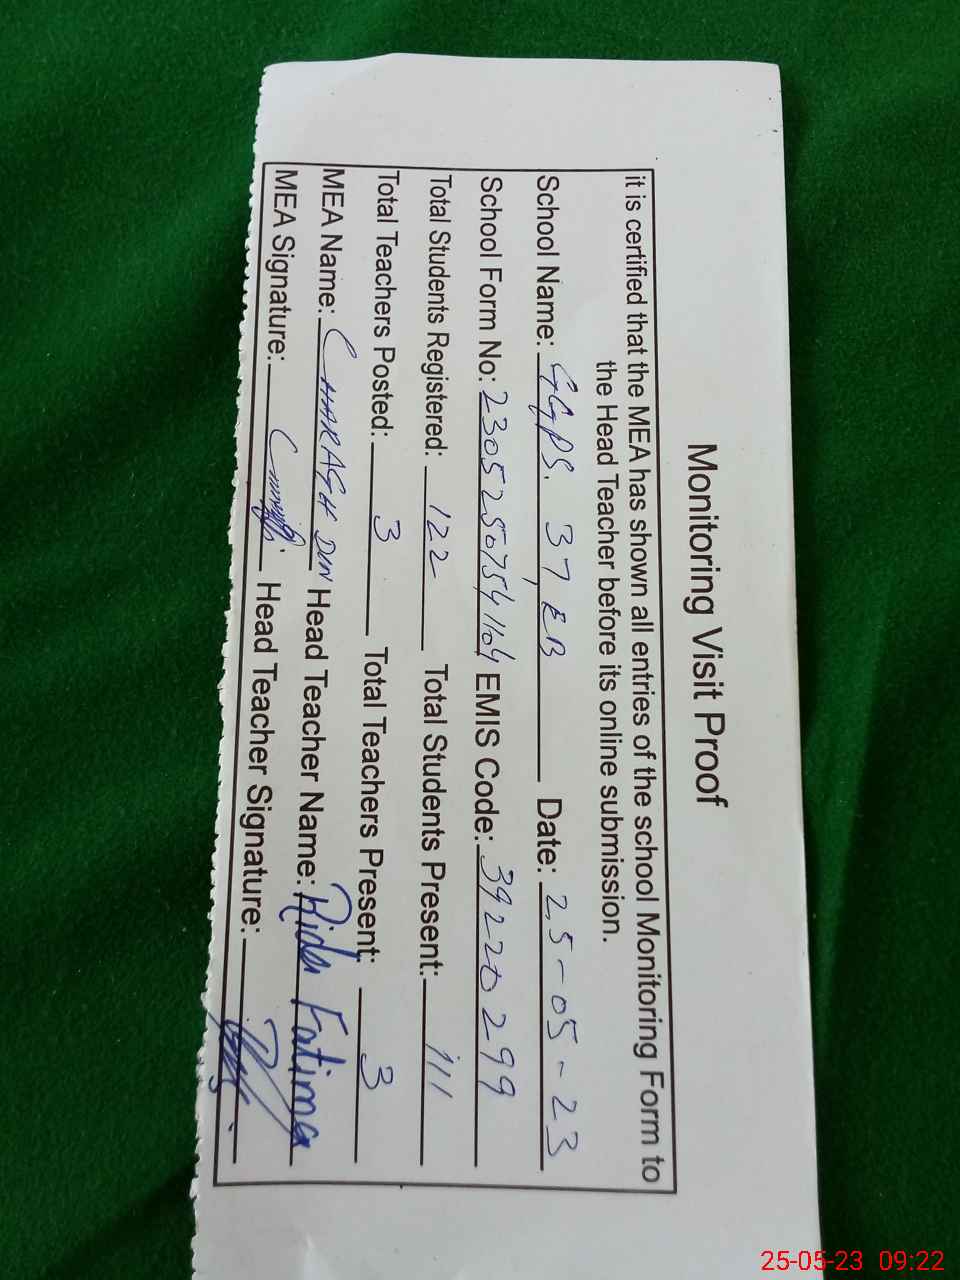 Monitoring Visit Proof
it is certified that the MEA has shown all entries of the school Monitoring Form to
the Head Teacher before its online submission.
School Name: GGPS. 37 EB Date: 25-05-23
School Form No: 2305250754164 EMIS Code: 39220299
Total Students Registered: 122 Total Students Present: 111
Total Teachers Posted: 3 Total Teachers Present: 3
MEA Name: CHARAGH DIN Head Teacher Name: Rida Fatima
MEA Signature: Head Teacher Signature:
25-05-23 09:22